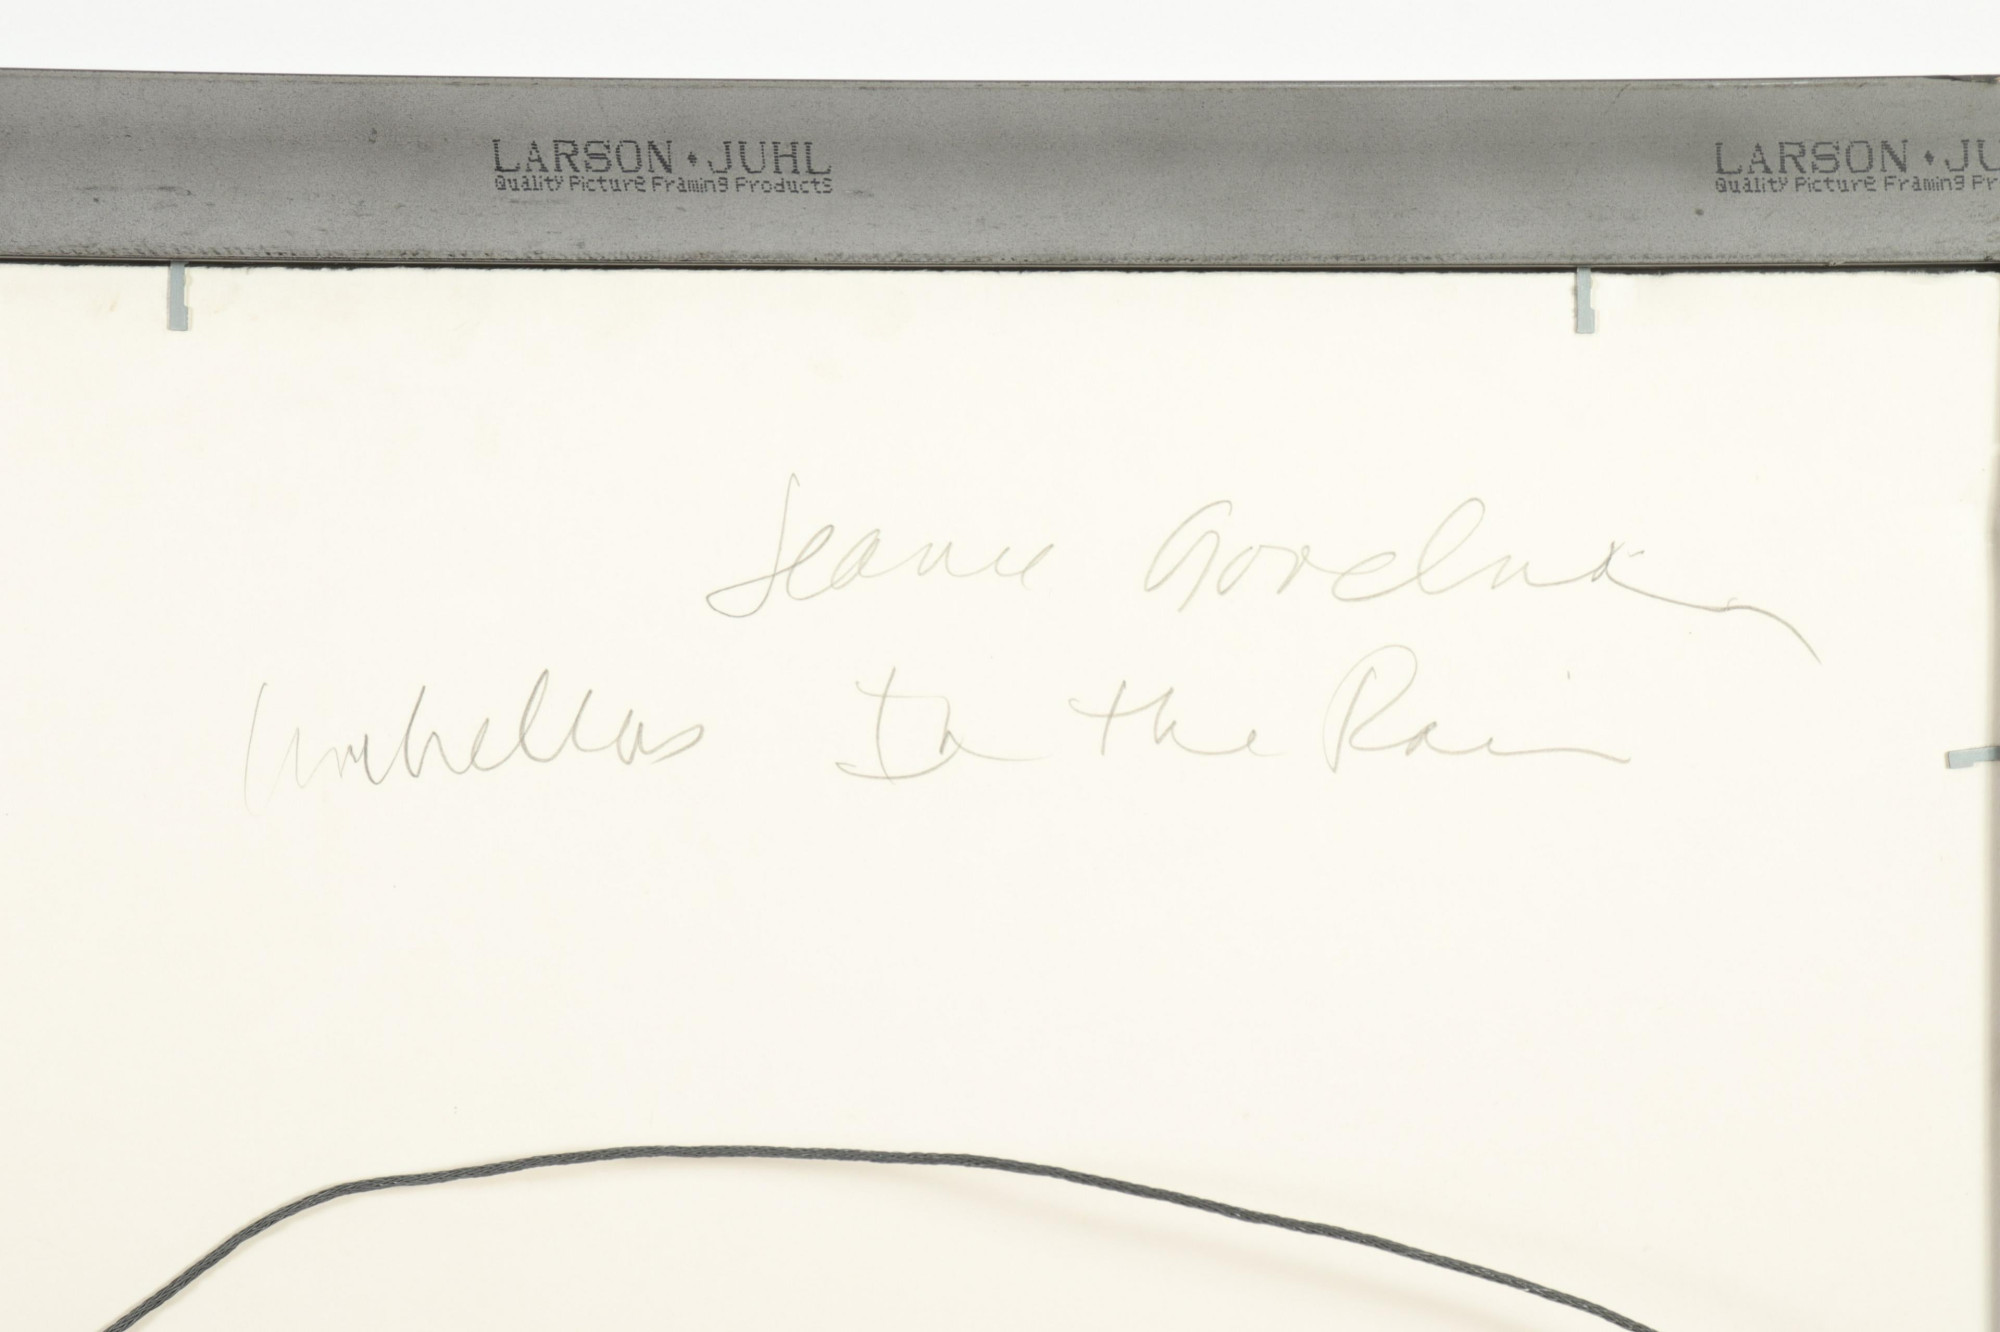 LARSON♦JUHL
Quality Picture Framing Products
LARSON♦JU
Quality Picture Framing Pr
Jeanne
Umbrellas In the Rain